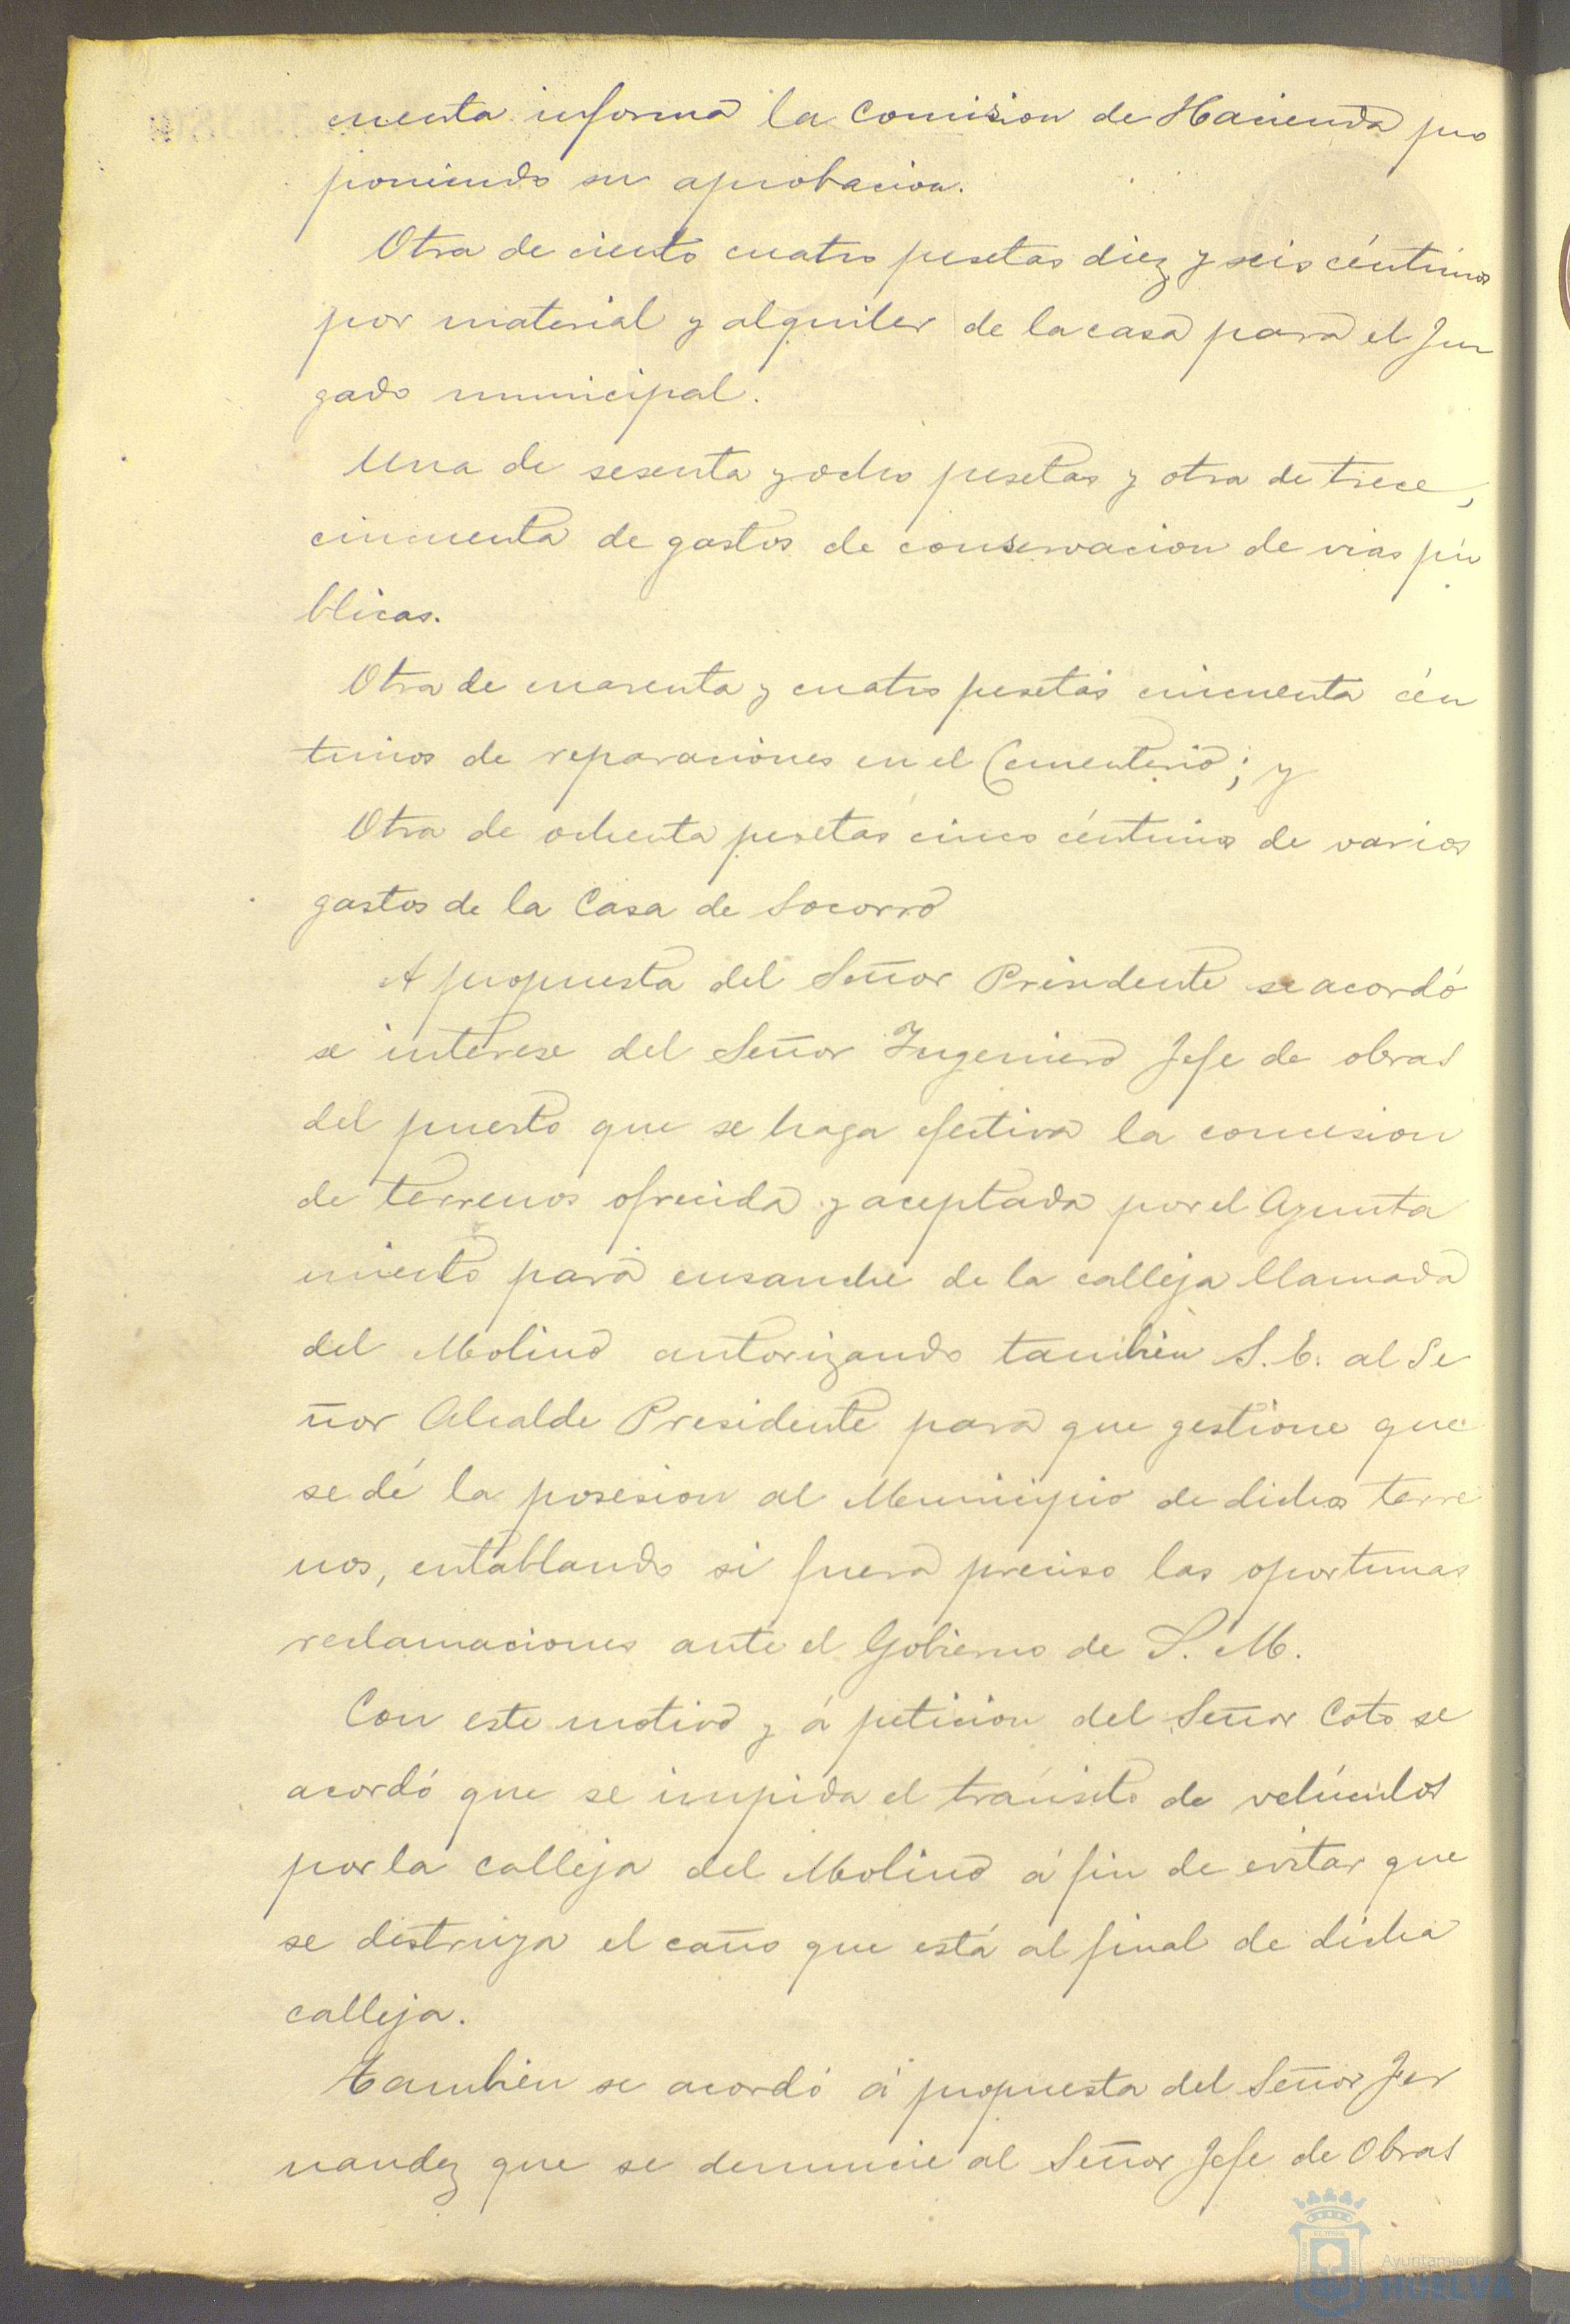 cuenta informa la Comision de Hacienda pro
poniendo su aprobacion.
Otra de ciento cuatro pesetas diez y seis céntimos
por material y alquiler de la casa para el Juz
gado municipal.
Una de sesenta y ocho pesetas y otra de trece,
cincuenta de gastos de conservacion de vias pú
blicas.
Otra de cuarenta y cuatro pesetas cincuenta cén
timos de reparaciones en el Cementerio; y
Otra de ochenta pesetas cinco céntimos de varios
gastos de la Casa de Socorro
A propuesta del Señor Presidente se acordó
se interese del Señor Ingeniero Jefe de obras
del puerto que se haga efectiva la concesion
de terrenos ofrecida y aceptada por el Ayunta
miento para ensanche de la calleja llamada
del Molino autorizando tambien S. E. al Se
ñor Alcalde Presidente para que gestione que
se dé la posesion al Municipio de dichos terre
nos, entablando si fuera preciso las oportunas
reclamaciones ante el Gobierno de S. M.
Con este motivo y á peticion del Señor Coto se
acordó que se impida el tránsito de vehículos
por la calleja del Molino á fin de evitar que
se destruya el caño que está al final de dicha
calleja.
Tambien se acordó á propuesta del Señor Fer
nandez que se denuncie al Señor Jefe de Obras
Ayuntamiento de
HUELVA